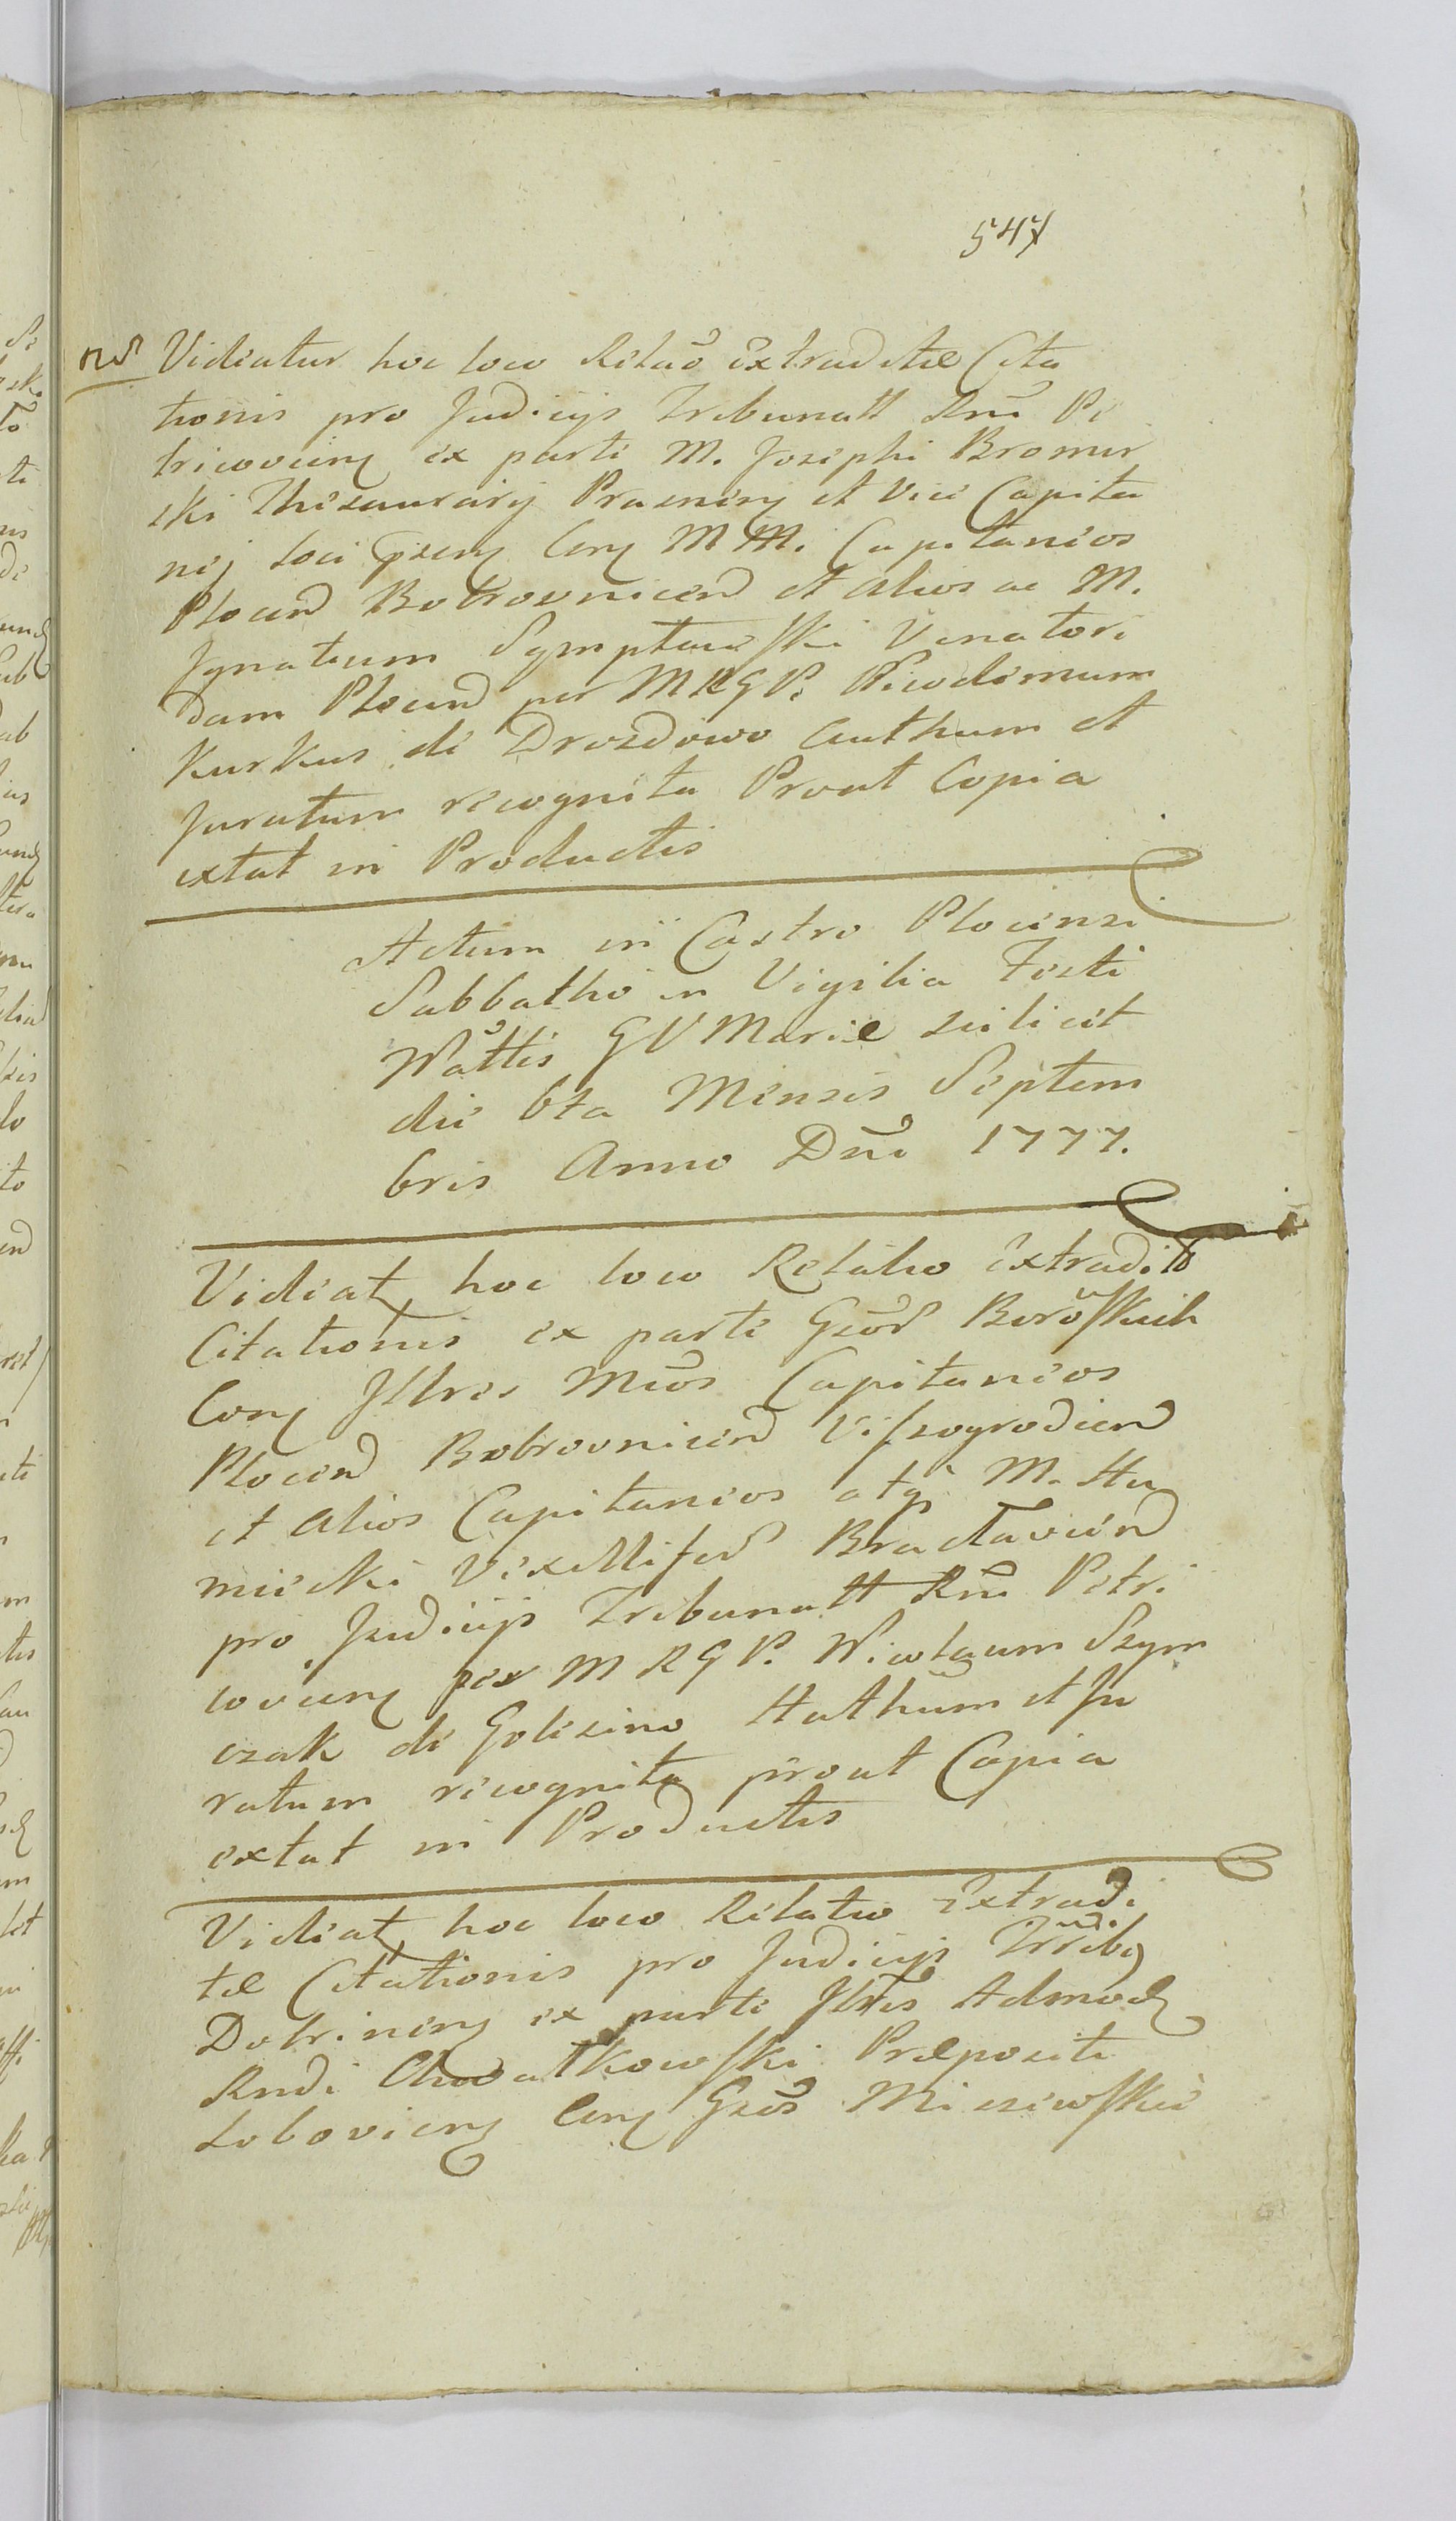 547
Nō Videatur hoc loco Relaō Extraditæ Cita
tionis pro Judicijs Tribunall Rni Pe
tricovien ex parte M. Josephi Bromir
ski Thesaurarij Prasnen et Vice Capita
nej loci psen Con M M. Capitaneos
Plocen Bobrovnicen et alios ac M.
Ignatium Symptawski Venatori
dam Plocen per M R G P. Nicodemum
Kurkus de Drozdowo Authum et
Juratum recognita Prout Copia
extat in Productis
Actum in Castro Plocensi
Sabbatho in Vigilia Festi
Nattis G V Mariæ scilicet
die 6ta Mensis Septem
bris Anno Dni 1777.
Videat hoc loco Relatio Extradit
Citationis ex parte Gsor Beroskich
Con Illres Mcos Capitaneos
Plocen Bobrovnicen Viszogrodien
et alios Capitaneos atq M. Hu
miecki Vexillifer Braclavien
pro Judicijs Tribunall Rni Petri
covien per M R G P. Nicolaum Szym
czak de Golezino Authum et Ju
ratum recognita prout Copia
extat in Productis
Videat hoc loco Relatio Extradi
tæ Citationis pro Judicijs Trrib
Dobrinen ex parte Illris Admod
Rndi Præpositi
Lobovien Con Gsos Miszewskie